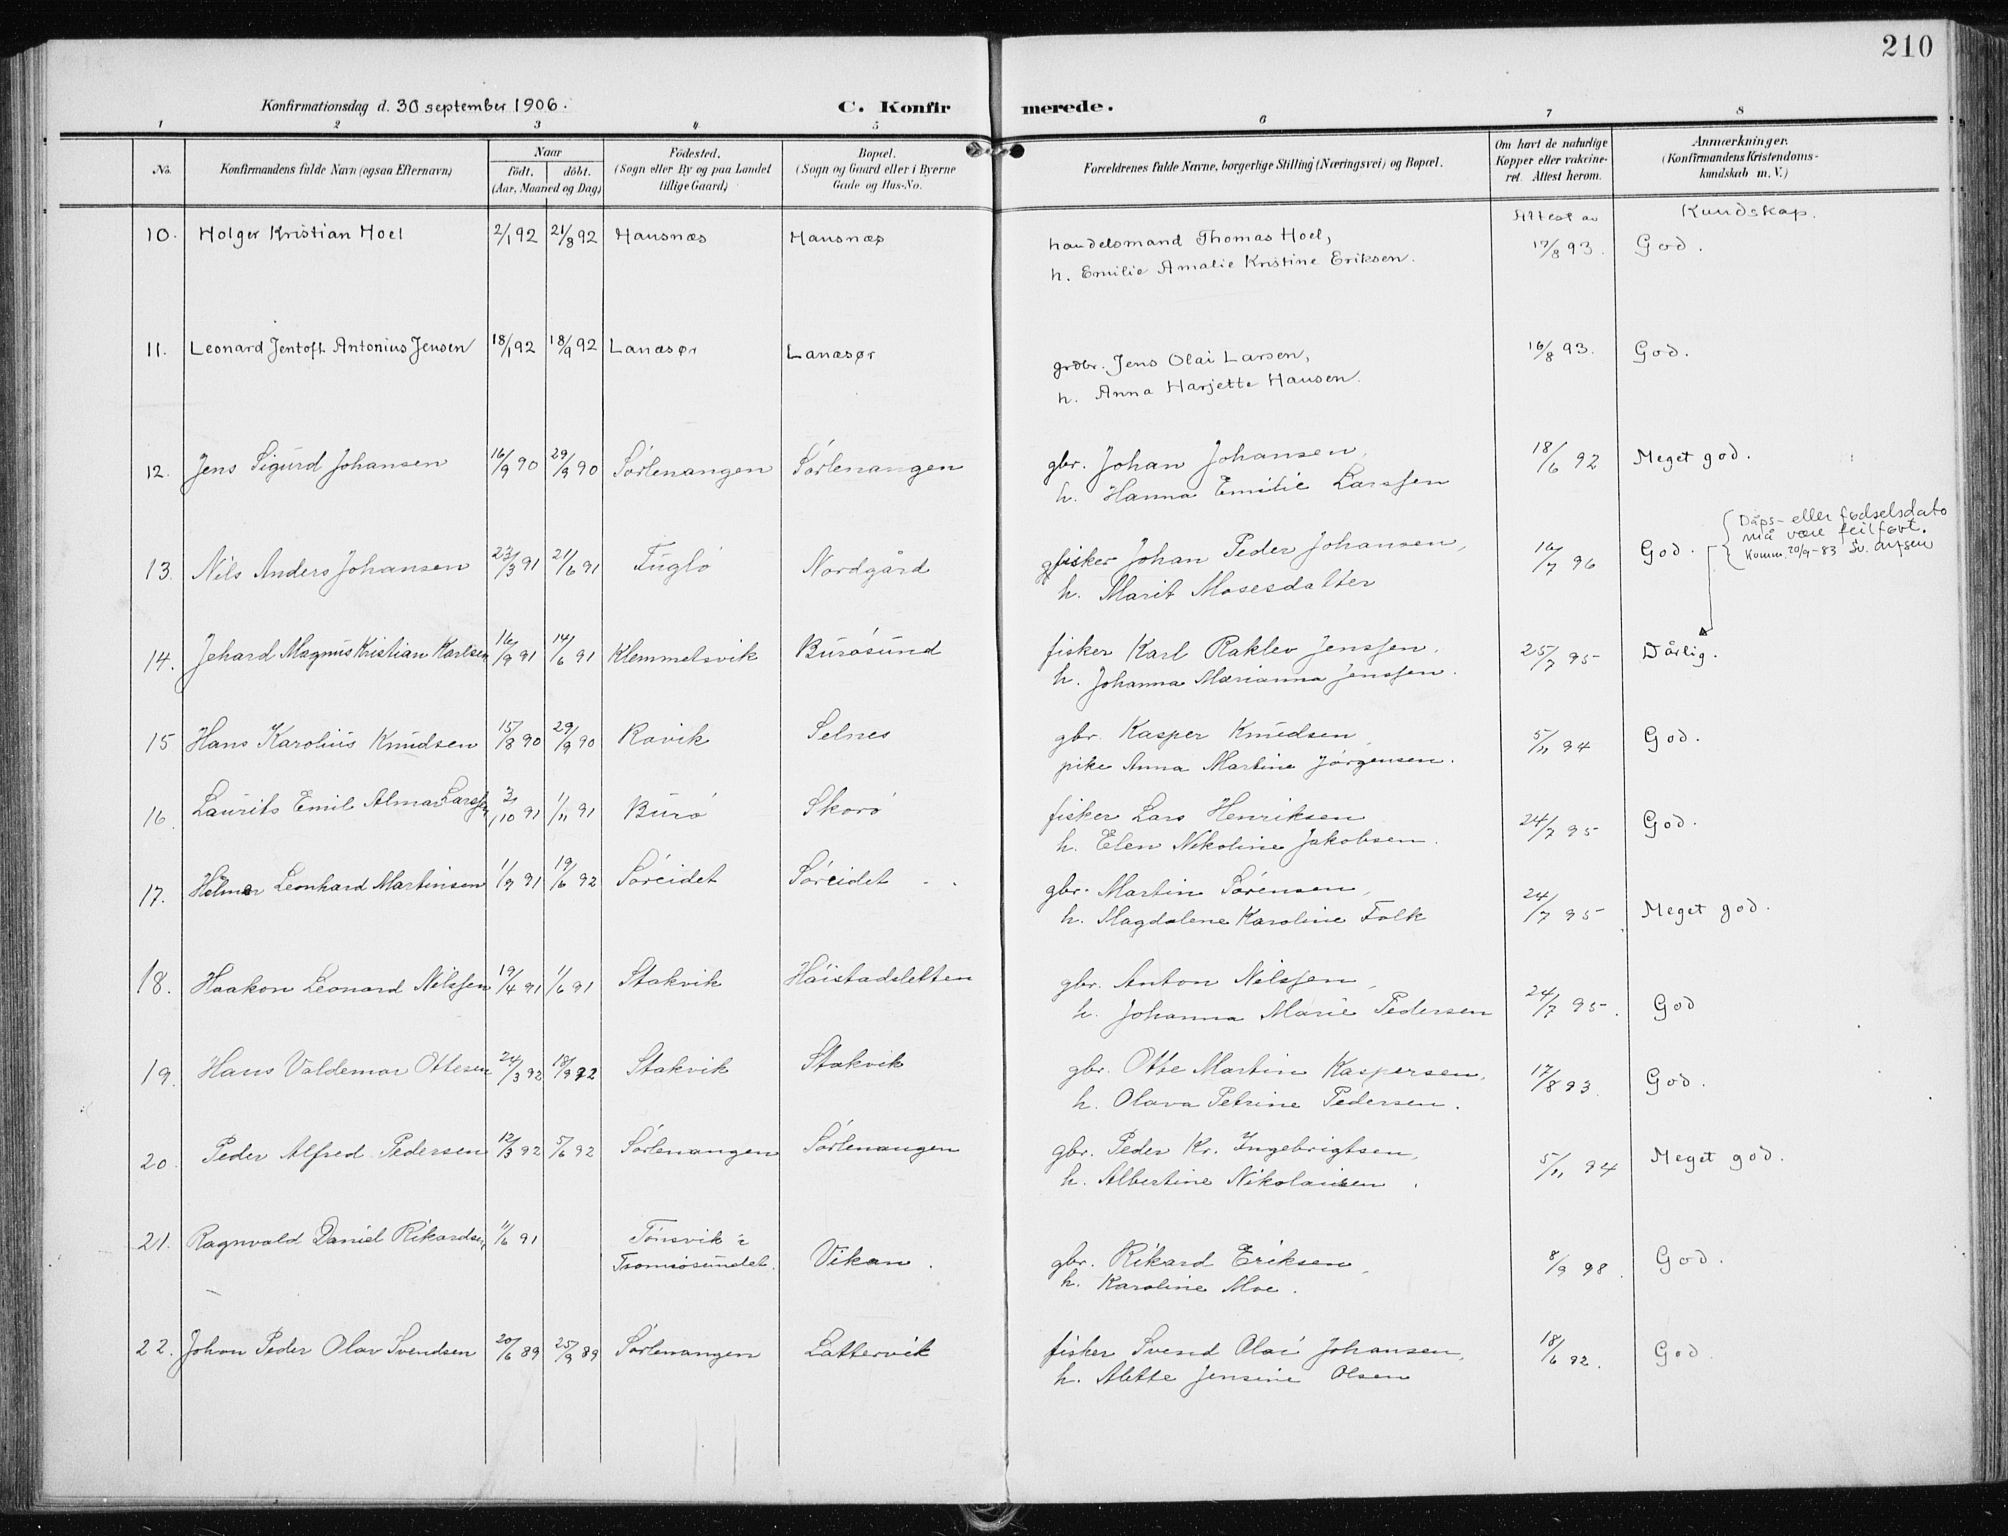 210
Konfirmationsdag d. 30 september 1906.
C. Konfirmerede.
1 2 3 4 5 6 7 8
No. Konfirmandens fulde Navn (ogsaa Efternavn) Naar født. døbt. (Aar, Maaned og Dag) Fødested. (Sogn eller By og paa Landet tillige Gaard) Bopæl. (Sogn og Gaard eller i Byerne Gade og Hus-No. Forældrenes fulde Navne, borgerlige Stilling (Næringsvei) og Bopæl. Om havt de naturlige Kopper eller vakcineret. Attest herom. Anmerkninger. (Konfirmandens Kristendomskundskab m. V.)
Attest av Kundskap.
10. Holger Kristian Hoel 2/1 92 21/8 92 Hansnæs Hansnæs handelsmand Thomas Hoel, 17/8 93. God.
h. Emilie Amalie Kristine Eriksen.
11. Leonard Jentoft Antonius Jensen 18/1 92 18/9 92 Lanæsør Lanæsør grdbr. Jens Olai Larsen, 16/8 93. God.
h. Anna Harjette Hansen.
12. Jens Sigurd Johansen 16/9 90 29/9 90 Sørlenangen Sørlenangen gbr. Johan Johansen, 18/6 92 Meget god.
h. Hanna Emilie Larssen
13. Nils Anders Johansen 23/3 91 21/6 91 Fuglø Nordgård fisker Johan Peder Johansen, 16/7 96 God.
h. Marit Mosesdatter
Dåps- eller fødselsdato
må være feilført.
Komm. 20/9-83 Sv.
14. Jehard Magnus Kristian Karlsen 16/9 91 14/6 91 Klemmetsvik Burøsund fisker Karl Raklev Jenssen, 25/7 95 Dårlig.
h. Johanna Marianna Jenssen.
15 Hans Karolius Knudsen 15/8 90 29/9 90 Ravik Selnes gbr. Kasper Knudsen, 5/11 94 God.
pike Anna Martine Jørgensen.
16. Laurits Emil Almar Larssen 3/10 91 1/11 91 Burø Skorø fisker Lars Henriksen 24/7 95 God.
h. Elen Nikoline Jakobsen.
17. Helmer Leonhard Martinsen 1/9 91 19/6 92 Søreidet Søreidet gbr. Martin Sørensen, 24/7 95 Meget god.
h. Magdalene Karoline Falk
18. Haakon Leonard Nilssen 19/4 91 1/6 91 Stakvik Haistadsletten gbr. Anton Nilssen, 24/7 95. God
h. Johanna Marie Pedersen
19. Hans Valdemar Ottesen 24/3 92 18/9 92 Stakvik Stakvik gbr. Otte Martin Kaspersen, 17/8 93. God.
h. Olava Petrine Pedersen.
20. Peder Alfred Pedersen 12/3 92 5/6 92 Sørlenangen Sørlenangen gbr. Peder Kr. Ingebrigtsen, 5/11 94 Meget god.
h. Albertine Nikolaisen.
21. Ragnvald Daniel Rikardsen 11/6 91 Tønsvik i Tromsøsundet. Vikan. gbr. Rikard Eriksen, 8/9 98. God.
h. Karoline Moe.
22. Johan Peder Olav Svendsen 20/6 89 25/9 89 Sørlenangen Lattervik fisker Svend Olai Johansen, 18/6 92. God.
h. Alette Jensine Olsen